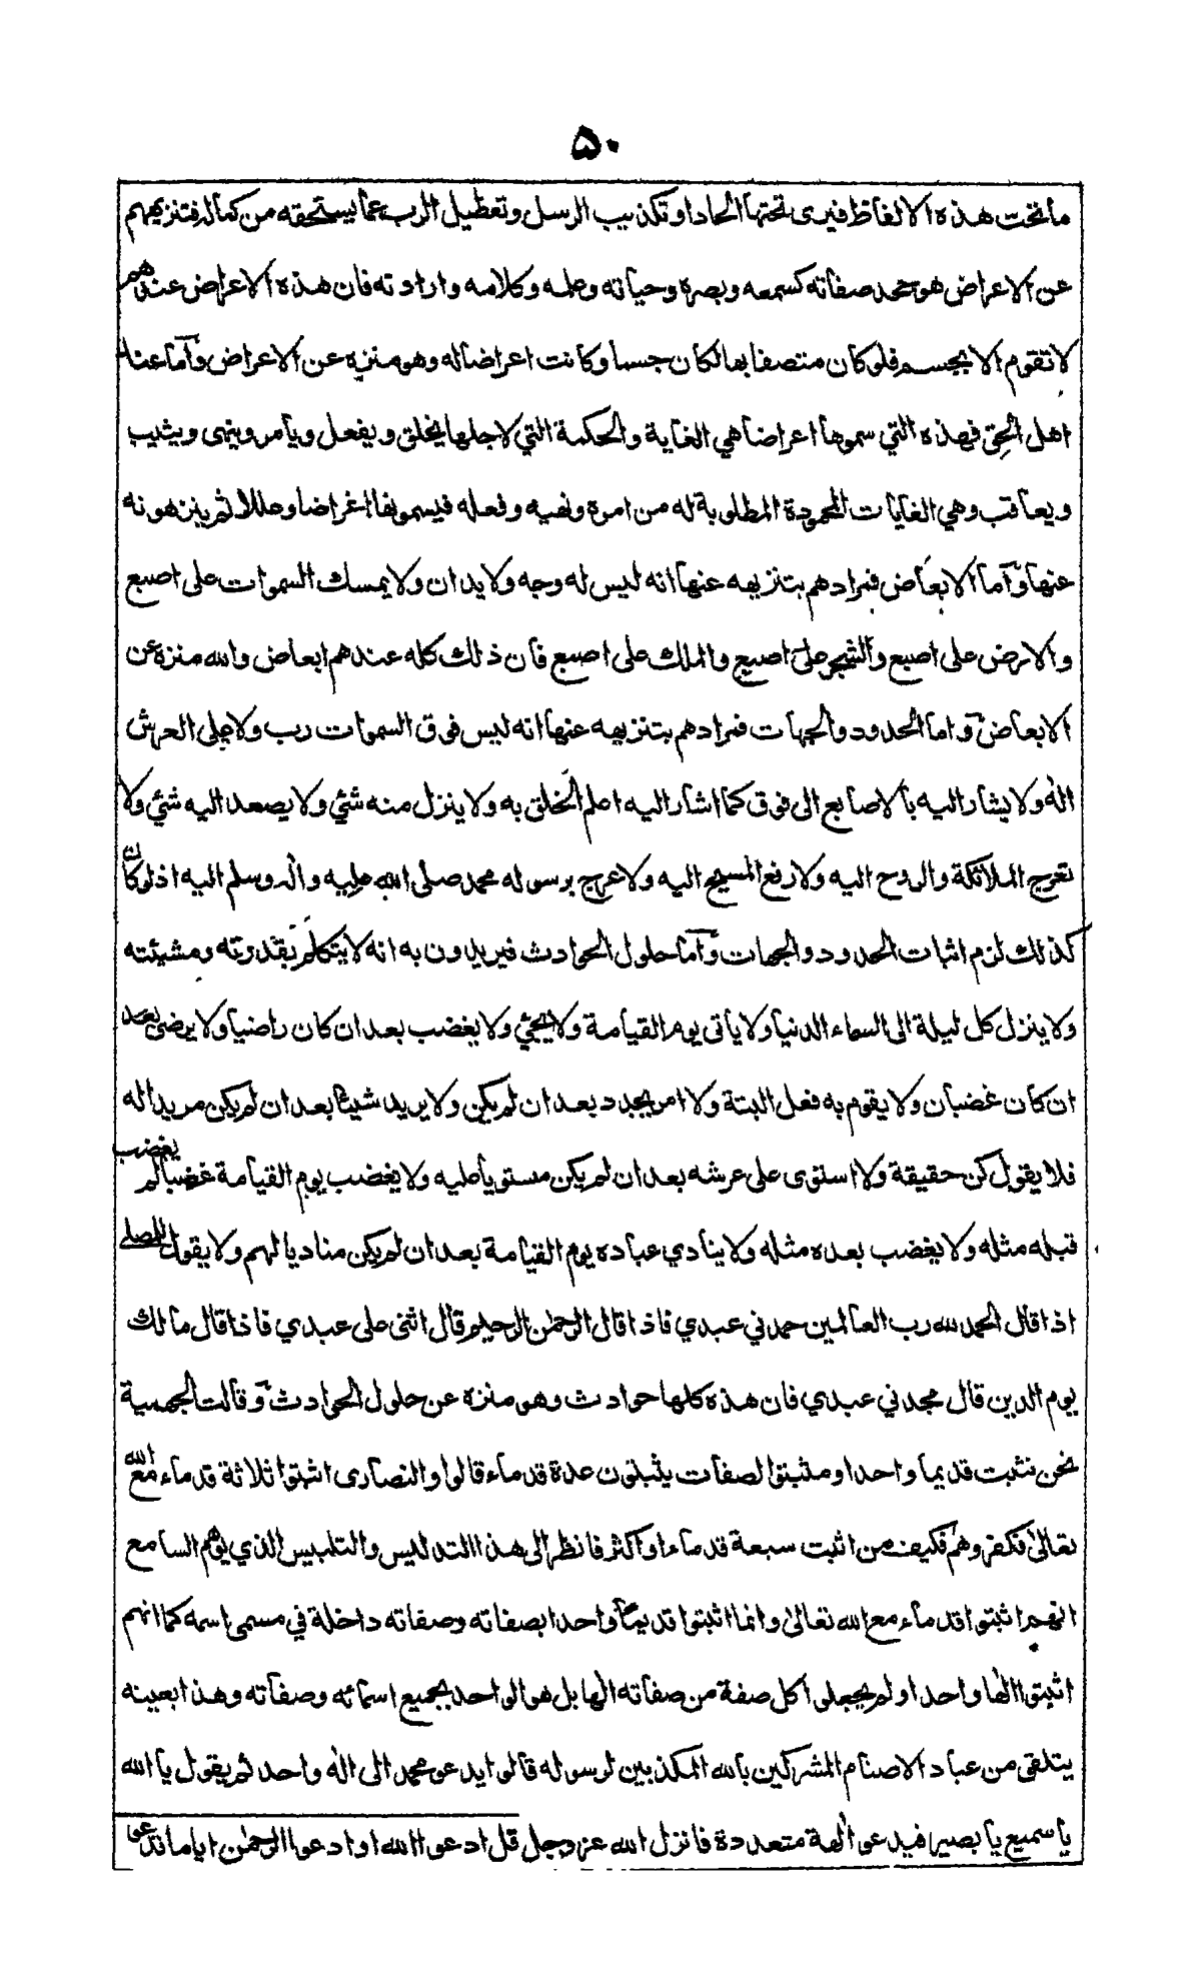 ۵۰
ما تحت هذه الالفاظ فيرى تحتها الحادا وتكذيب الرسل وتعطيل الرب عما يستحقه من كماله فتنزيههم
عن الاعراض هو جحد صفاته كسمعه وبصره وحياته وعلمه وكلامه وارادته فان هذه الاعراض عندهم
لا تقوم الا بجسم فلو كان متصفا بها لكان جسما وكانت اعراضا له وهو منزه عن الاعراض وآما عند
اهل الحق فهذه التي سموها اعراضا هي الغاية والحكمة التي لاجلها يخلق ويفعل ويأمر وينهى ويثيب
ويعاقب وهي الغايات المحمودة المطلوبة له من امره ونهيه وفعله فيسمونها اغراضا وعللا ثم ينزهونه
عنها وآما الابعاض فمرادهم بتنزيهه عنها انه ليس له وجه ولا يدان ولا يمسك السموات على اصبع
والارض على اصبع والشجر على اصبع والملك على اصبع فان ذلك كله عندهم ابعاض والله منزه عن
الابعاض وآما الحدود والجهات فمرادهم بتنزيهه عنها انه ليس فوق السموات رب ولا على العرش
اله ولا يشار اليه بالاصابع الى فوق كما اشار اليه اعلم الخلق به ولا ينزل منه شئ ولا يصعد اليه شئ ولا
تعرج الملائكة والروح اليه ولا رفع المسيح اليه ولا عرج برسوله محمد صلى الله عليه وآله وسلم اليه اذ لو كان
كذلك لزم اثبات الحدود والجهات وآما حلول الحوادث فيريدون به انه لا يتكلم بقدرته ومشيئته
ولا ينزل كل ليلة الى السماء الدنيا ولا ياتى يوم القيامة ولا يجئ ولا يغضب بعد ان كان راضيا ولا يرضى بعد
ان كان غضبان ولا يقوم به فعل البتة ولا امر يجدد بعد ان لم يكن ولا يريد شيئا بعد ان لم يكن مريدا له
فلا يقول كن حقيقة ولا استوى على عرشه بعد ان لم يكن مستويا عليه ولا يغضب يوم القيامة غضبا لم يغضب
قبله مثله ولا يغضب بعده مثله ولا ينادي عباده يوم القيامة بعد ان لم يكن مناديا لهم ولا يقول للمصلى
اذا قال الحمد لله رب العالمين حمدني عبدي فاذا قال الرحمٰن الرحيم قال اثنى على عبدي فاذا قال مالك
يوم الدين قال مجدني عبدي فان هذه كلها حوادث وهو منزه عن حلول الحوادث وقالت الجهمية
نحن نثبت قديما واحدا ومثبتوا لصفات يثبتون عدة قدماء قالوا والنصارى اثبتوا ثلاثة قدماء مع الله
تعالى فكفروهم فكيف من اثبت سبعة قدماء او اكثر فانظر الى هذا التدليس والتلبيس الذي يوهم السامع
انهم اثبتوا قدماء مع الله تعالى وانما اثبتوا قديما واحدا بصفاته وصفاته داخلة في مسمى اسمه كما انهم
اثبتوا الٰها واحدا ولم يجعلوا كل صفة من صفاته الٰها بل هو الواحد بجميع اسمائه وصفاته وهذا بعينه
يتلقى من عباد الاصنام المشركين بالله المكذبين لرسوله قالوا يدعو محمد الى الٰه واحد ثم يقول يا الله
يا سميع يا بصير فيدعو آلهة متعددة فانزل الله عز وجل قل ادعوا الله او ادعوا الرحمٰن اياما تدعو